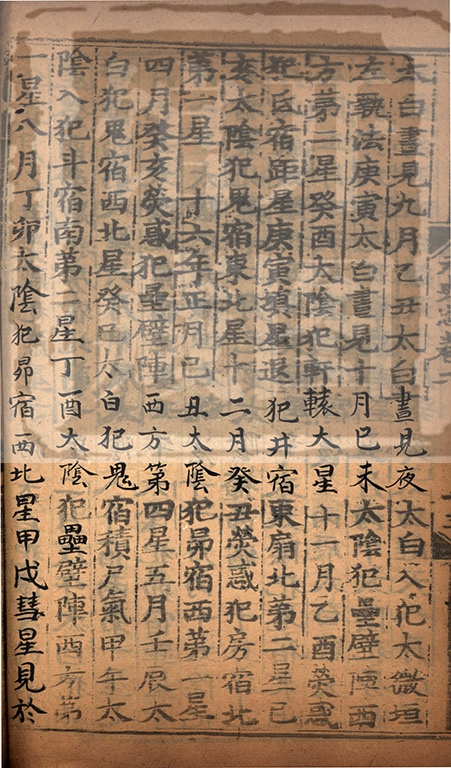 太白晝見九月乙丑太白晝見夜太白入犯太微垣
左執法庚寅太白晝見十月巳未太陰犯壘壁陣西
方第二星癸酉太陰犯軒轅大星十一月乙酉熒惑
犯氐宿距星庚寅填星退犯井宿東扇北第二星巳
亥太陰犯鬼宿東北星十二月癸丑熒惑犯房宿北
第一星　十六年正月巳丑太陰犯昴宿西第一星
四月癸亥熒惑犯壘壁陣西方第四星五月壬辰太
白犯鬼宿西北星癸巳太白犯鬼宿積尸氣甲午太
陰入犯斗宿南第二星丁酉太陰犯壘壁陣西方第
一星八月丁卯太陰犯昴宿西北星甲戌彗星見於